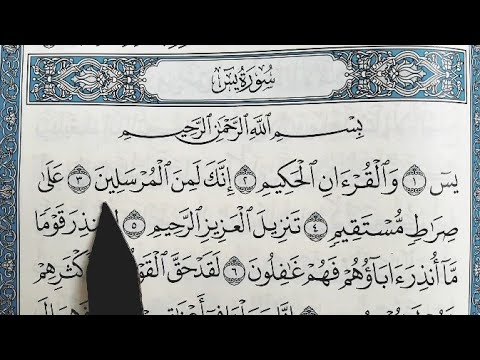 سُورَةُ يسٓ
بِسْمِ اللَّهِ الرَّحْمَٰنِ الرَّحِيمِ
يسٓ ۝١ وَالْقُرْءَانِ الْحَكِيمِ ۝٢ إِنَّكَ لَمِنَ الْمُرْسَلِينَ ۝٣ عَلَىٰ
صِرَاطٍ مُّسْتَقِيمٍ ۝٤ تَنزِيلَ الْعَزِيزِ الرَّحِيمِ ۝٥ قَوْمًا
مَّآ أُنذِرَ ءَابَآؤُهُمْ فَهُمْ غَٰفِلُونَ ۝٦ لَقَدْ حَقَّ